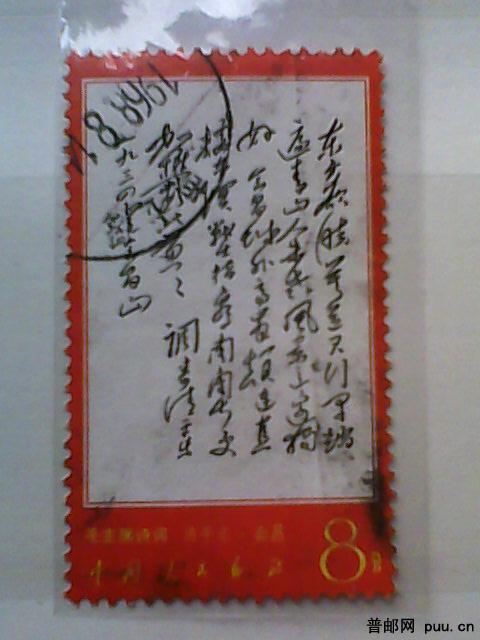 东方欲晓莫道君行早踏
遍青山人未老风景这边独
好会昌城外高峰颠连直
接东溟战士指看南粤更
加郁郁葱葱 调寄清平乐
一九三四 会昌山
1968.8.1
毛主席诗词 清平乐·会昌
中国人民邮政
8分
普邮网 puu.cn